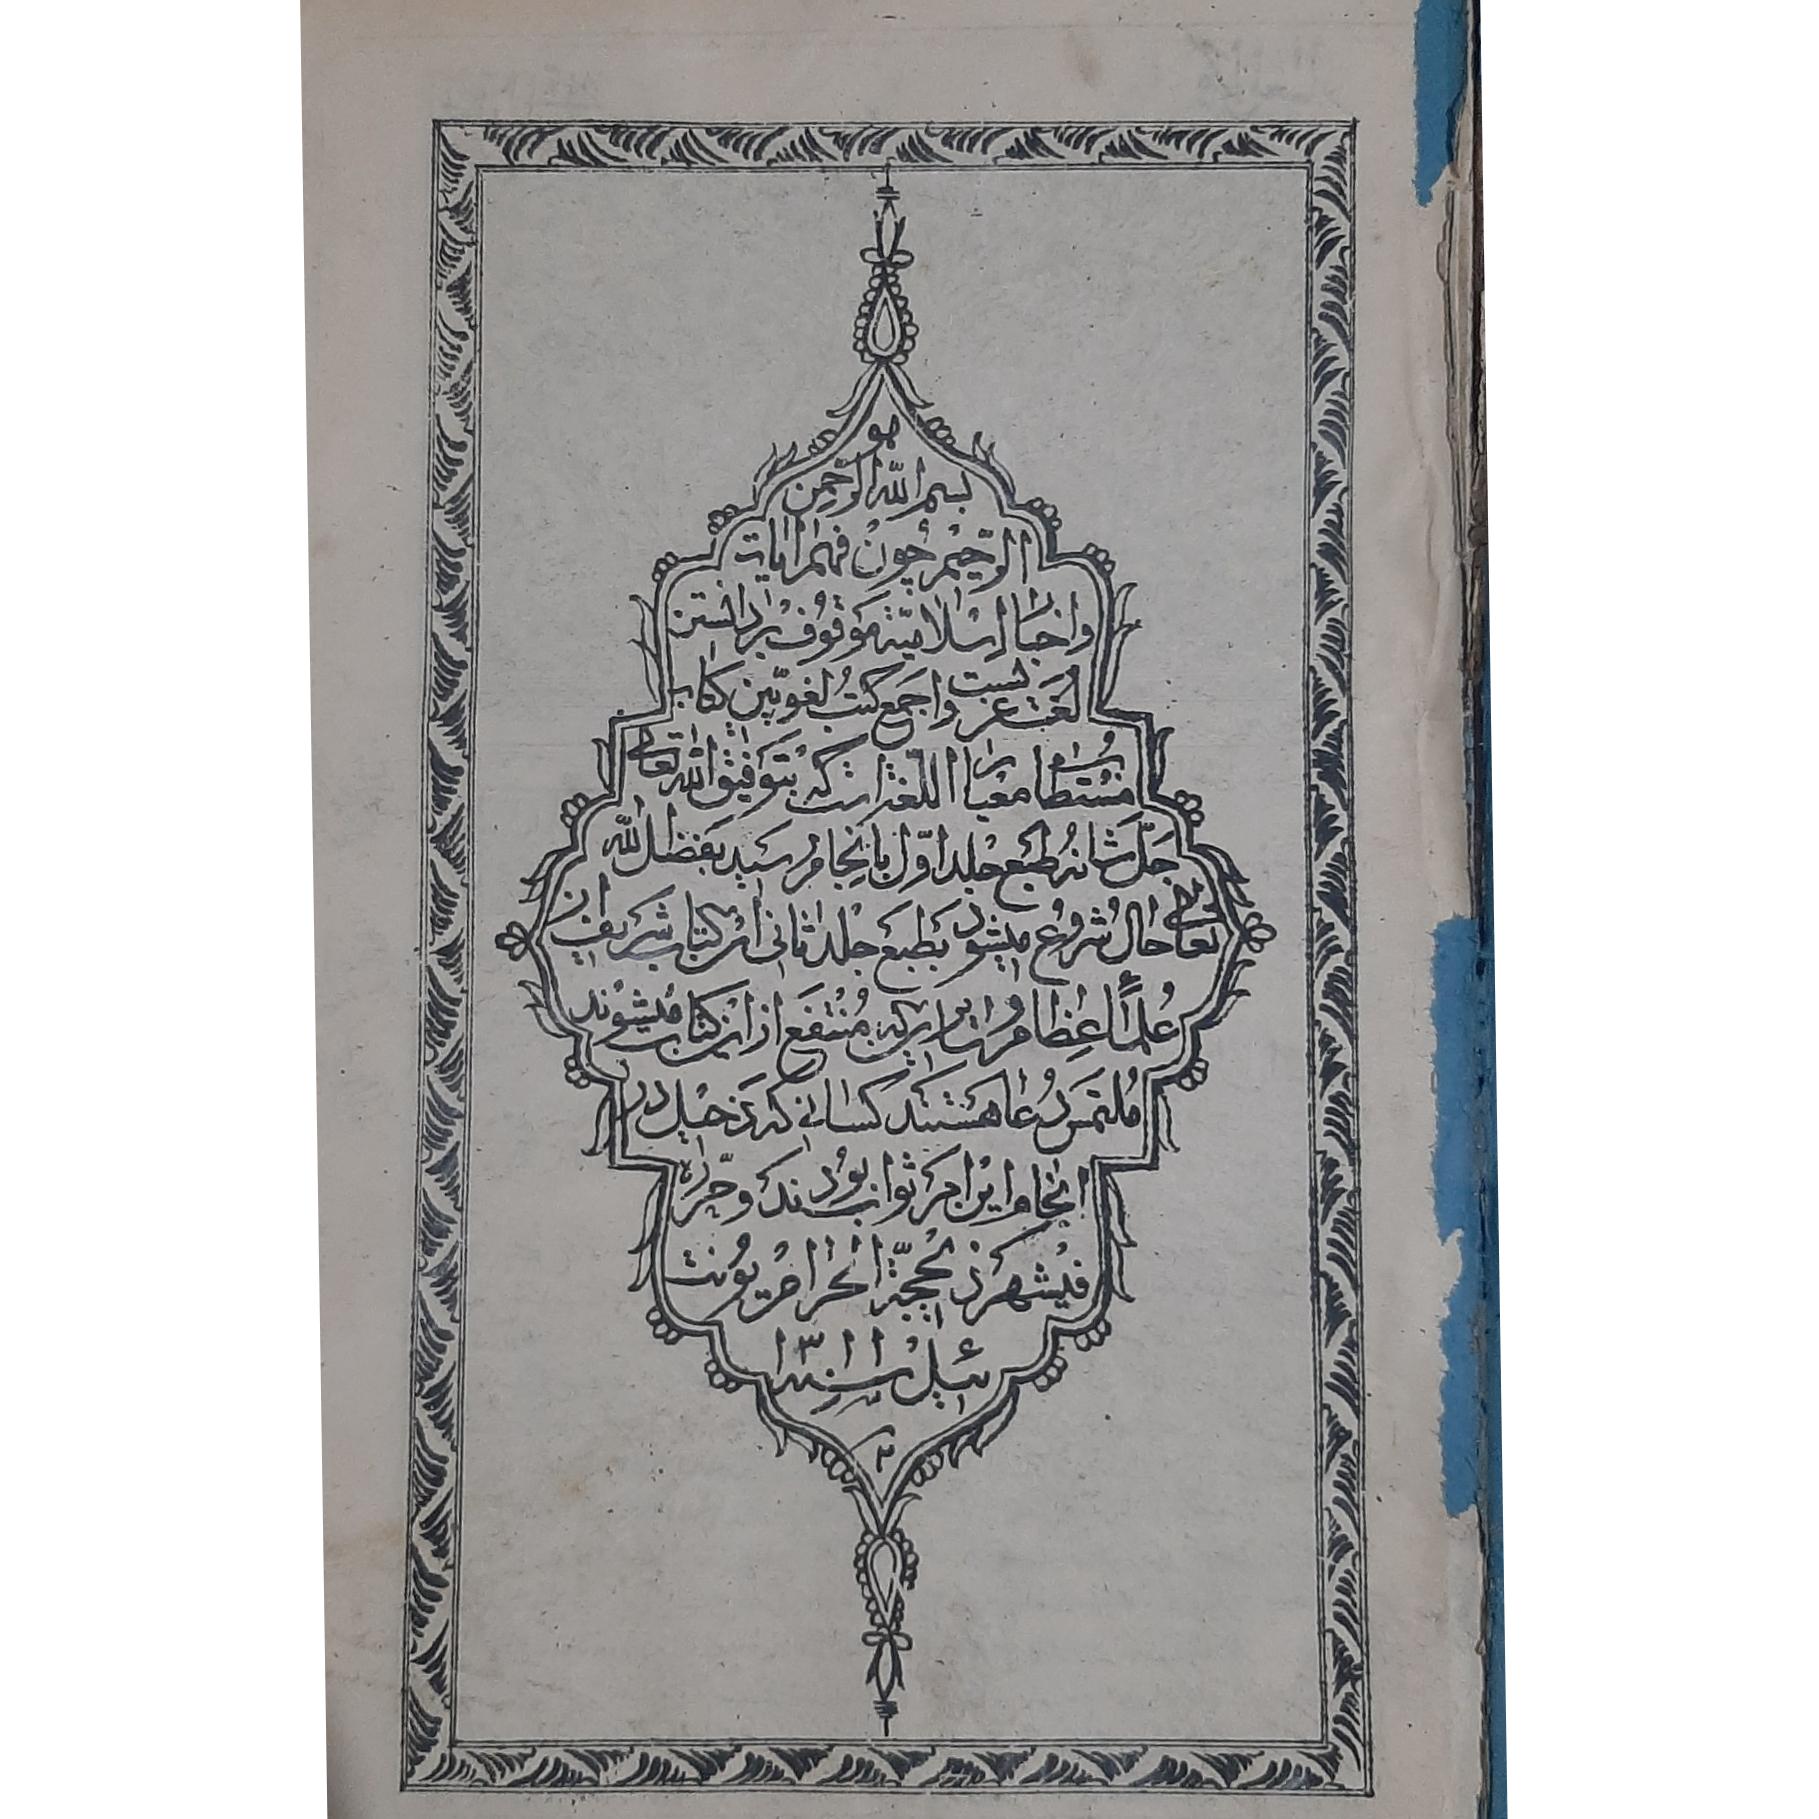 هو
بسم الله الرحمن
الرحیم چون فهم ایات
و اخبار اسلامیّة موقوف بر دانستن
لغت عربست و اجمع کتب لغویین کتاب
مستطاب معیار اللغة است که بتوفیق الله تعالی
جلّ شانه طبع جلد اوّل بانجام رسید بفضل الله
تعالی حال شروع میشود بطبع جلد ثانی این کتاب شریف از
علمآء اعظام و ناس که منتفع از این کتاب میشوند
ملتمس دعا هستند کسانی که دخیل در
انجام این امر ثواب بودند و حرّره
فیشهر ذیحجّة الحرام یونت
ئیل سنه ۱۳۱۱